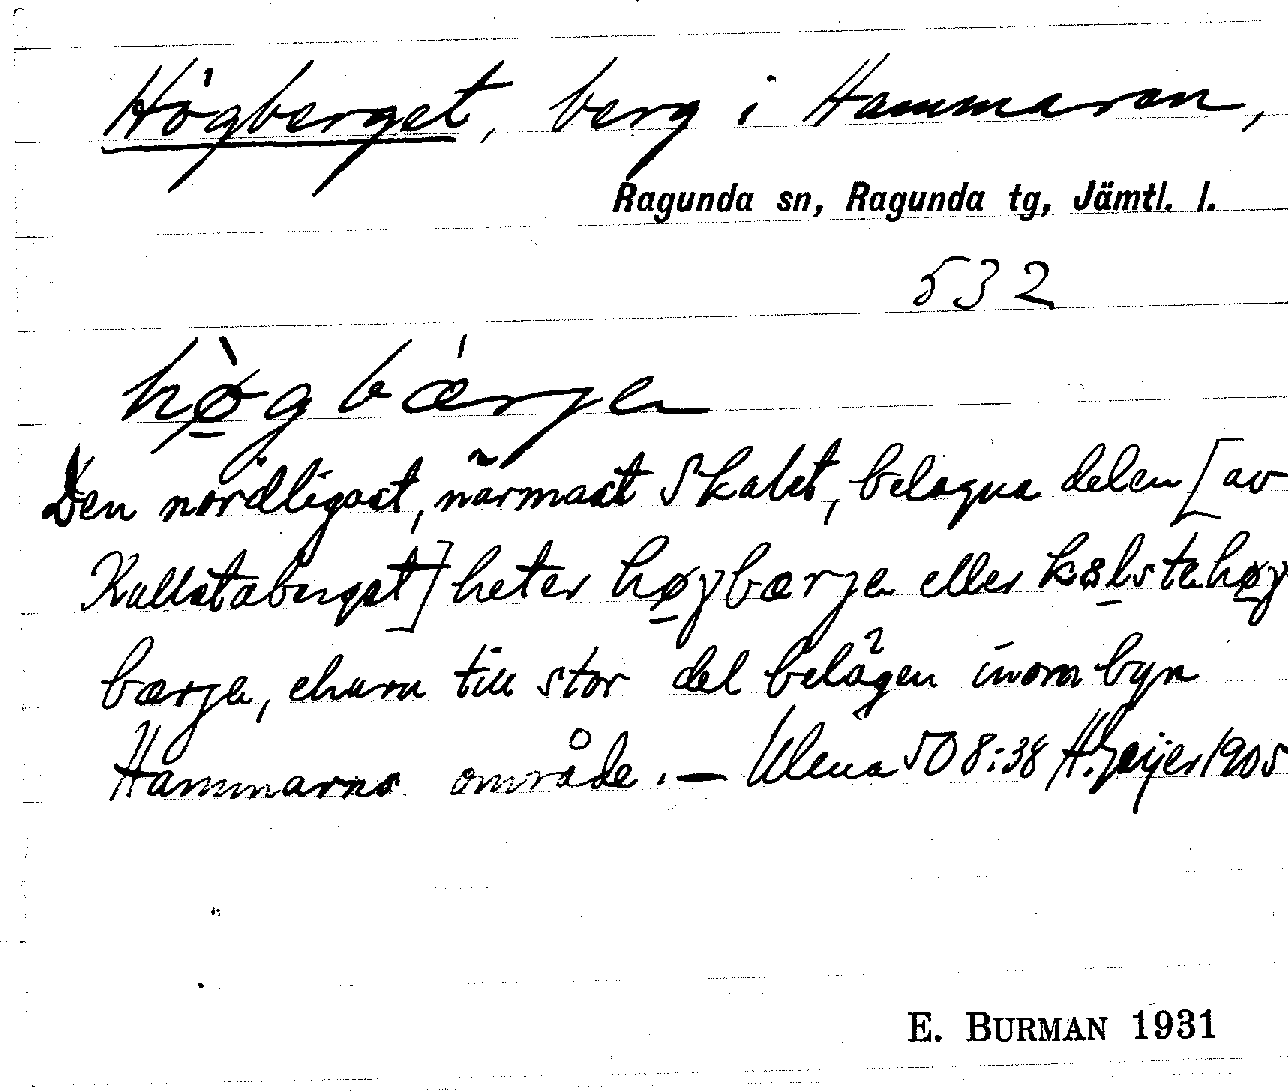 Högberget, berg i Hammaren,
Ragunda sn, Ragunda tg, Jämtl. l.
532
hø̲̀gbǽrjen
Den nordligast, närmast belägna delen [av
Kullstaberget] heter hø̲gbærjen eller
bærjen, ehuru till stor del belägen inom byn
Hammarns område. — Ulma 508:38 H. Geijer 1905
E. BURMAN 1931